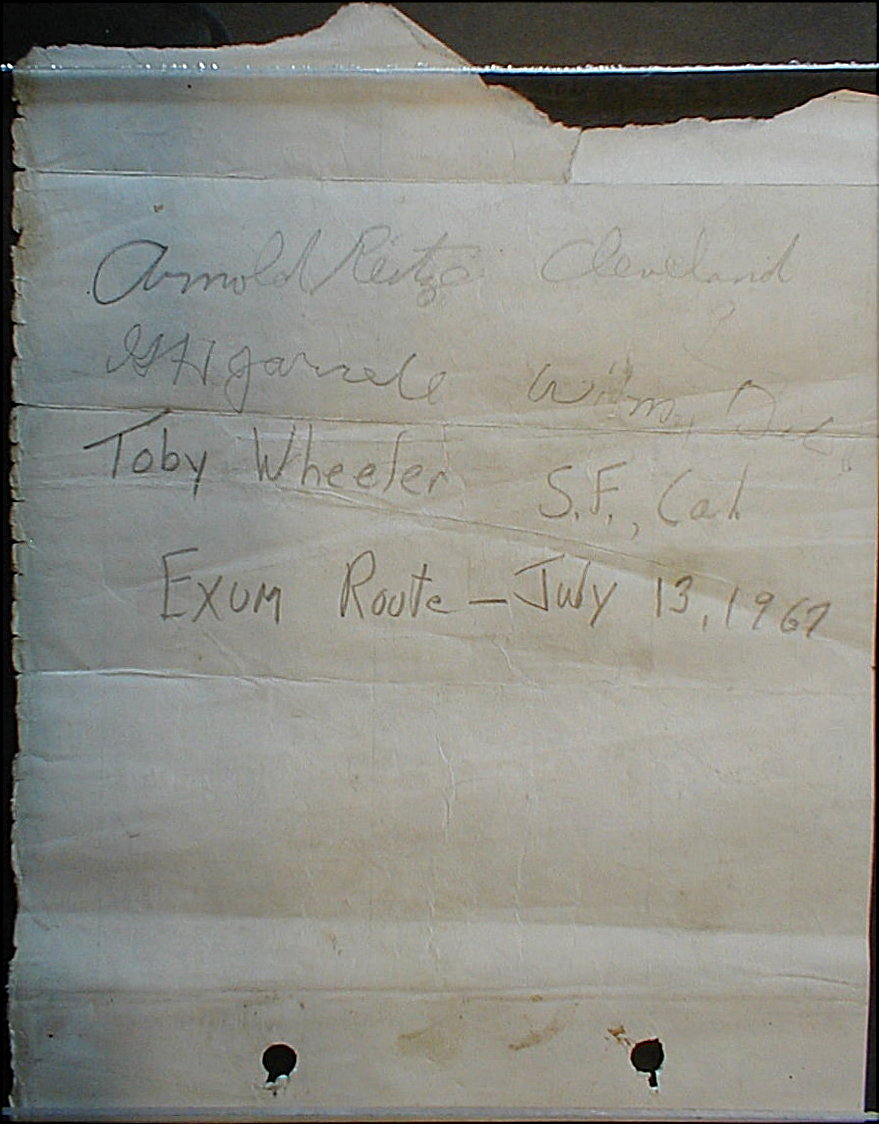 Arnold Reitze Cleveland
GH Wilm, Del
Toby Wheeler S.F., Cal
Exum Route – July 13, 1967